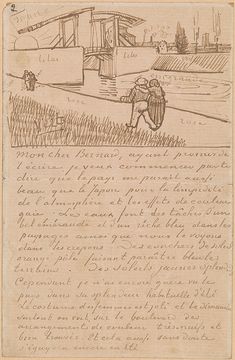 2
lilas
lilas
rose
Mon cher Bernard, ayant promis de
t'écrire je veux commencer par te
dire que le pays me parait aussi
beau que le Japon pour la limpidité
de l'atmosphère et les effets de couleur
gaie. Les eaux font des taches d'un
bel émeraude et d'un riche bleu dans les
paysages ainsi que nous le voyons
dans les crepons. Des couchers de soleil
orangé pâle faisant paraitre bleus les
terrains. Des soleils jaunes splendides.
Cependant je n'ai encore guère vu le
pays dans sa splendeur habituelle d'été
Le costume des femmes est joli et le dimanche
surtout on voit sur le boulevard des
arrangements de couleur très naifs et
bien trouvés. Et cela aussi sans doute
s'égayera encore en été